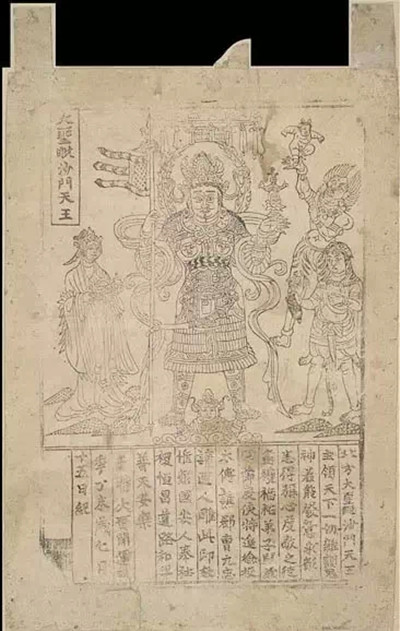 大聖毗沙門天王
北方大聖毗沙門天王
主領天下一切雜類鬼
神若能發意求願
悉得稱心虔敬之徒
盡獲福祐弟子歸義
軍節度使特進檢校
太傅譙郡曹元忠
請匠人雕此印板
惟願國安人泰社
稷恒昌道路和平
普天安樂
大晉開運四
年丁未歲七月
十五日紀